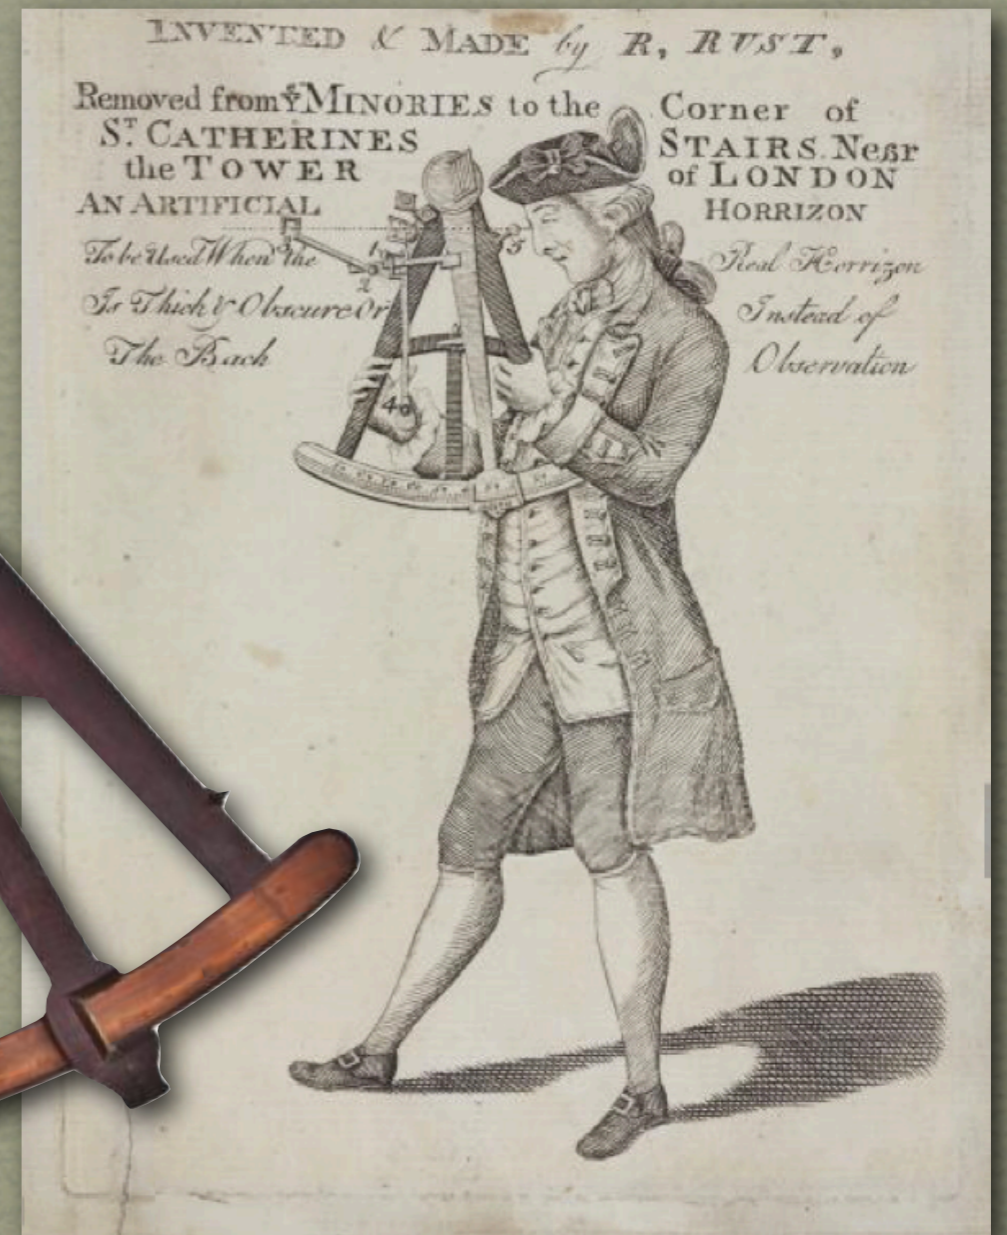 INVENTED & MADE by R, RUST,
Removed from yᵉ MINORIES to the Corner of
Sᵀ. CATHERINES STAIRS. Near
the TOWER of LONDON
AN ARTIFICIAL HORRIZON
To be Used When the Real Horrizon
Is Thick & Obscure Or Instead of
The Back Observation
1
5
2
4